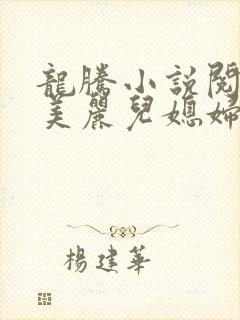 龍騰小説閱
美麗兒媳婦
楊建華